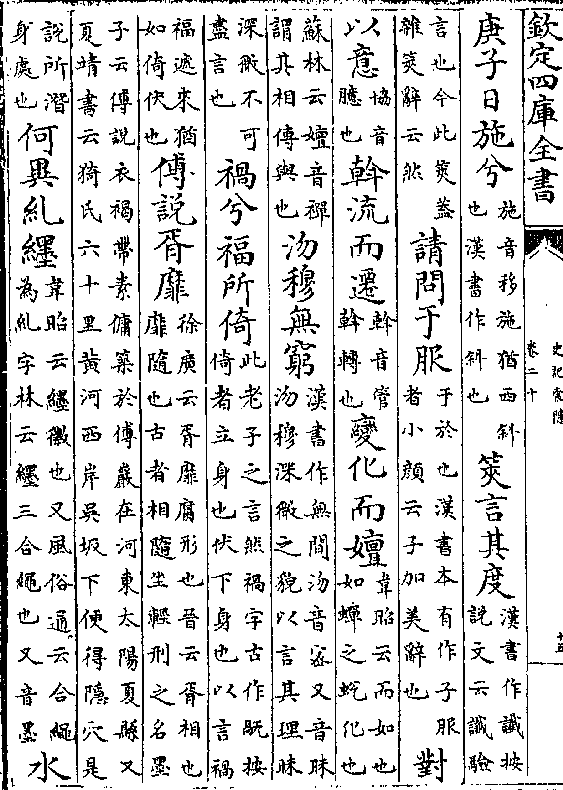 欽定四庫全書
史記索隱
卷二十
十五
庚子日施兮施音移施猶西斜也漢書作斜也筴言其度漢書作讖按說文云讖驗
言也今此筴蓋雜筴辭云然請問于服于於也漢書本有作子服者小顏云子加美辭也對
以意協音臆也斡流而遷斡音管斡轉也變化而嬗韋昭云而如也如蟬之蛻化也
蘇林云嬗音禪謂其相傳與也沕穆無窮漢書作無間沕音密又音昧沕穆深微之貌以言其理昧
深微不可盡言也禍兮福所倚此老子之言然禍字古作旤按倚者立身也伏下身也以言禍
福遞來猶如倚伏也傅說胥靡徐廣云胥靡腐形也晉云胥相也靡隨也古者相隨坐輕刑之名墨
子云傅說衣褐帶素傭築於傅巖在河東太陽夏縣又夏靖書云猗氏六十里黃河西岸吳坂下便得隱穴是
說所潛身處也何異糺纆韋昭云纆徽也又風俗通云合繩為糺字林云纆三合繩也又音墨水